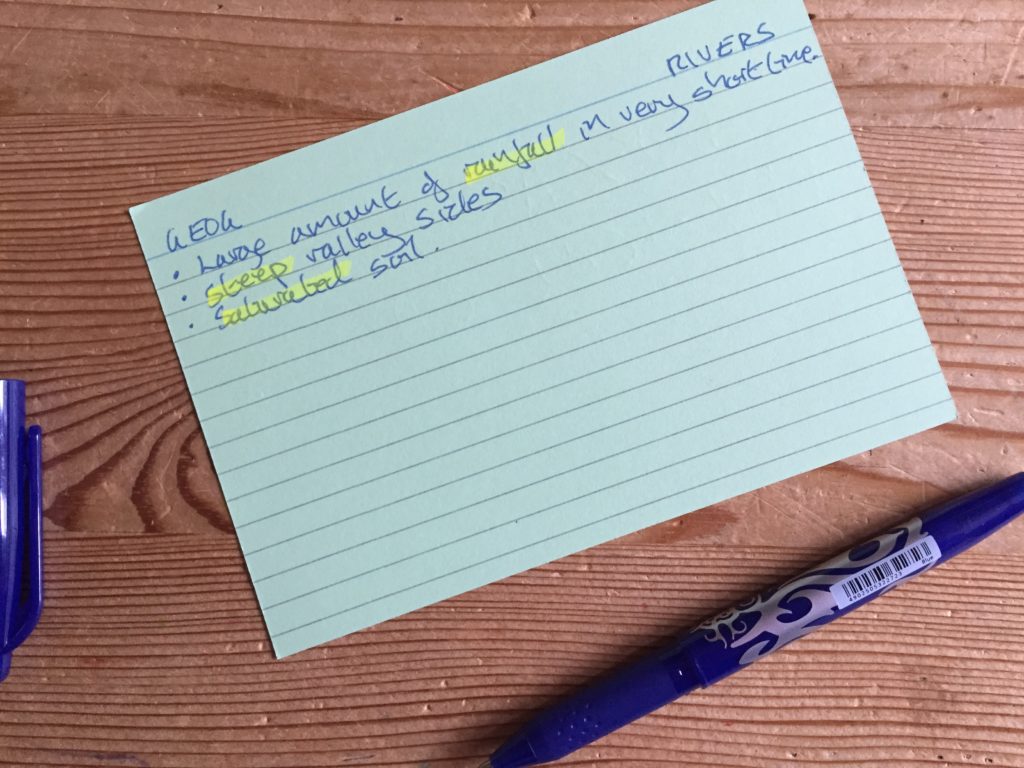 RIVERS
GEOG
• Large amount of rainfall in very short time.
• steep valley sides
• saturated soil.
4902505322723
Blue